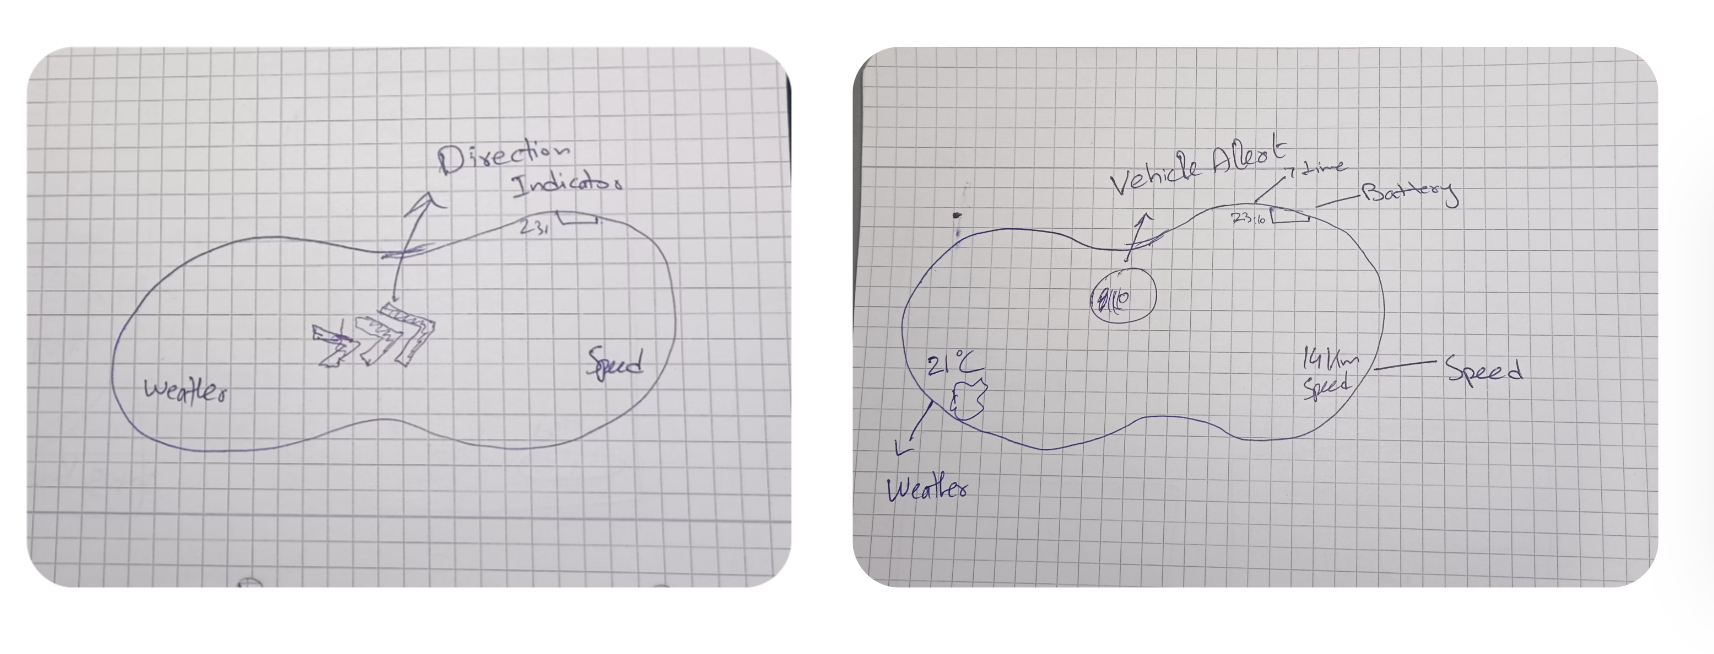 Direction
Indicator
23:
Weather
Speed
Vehicle Alert
Time
Battery
23:10
21°C
14 Km
Speed
Speed
Weather